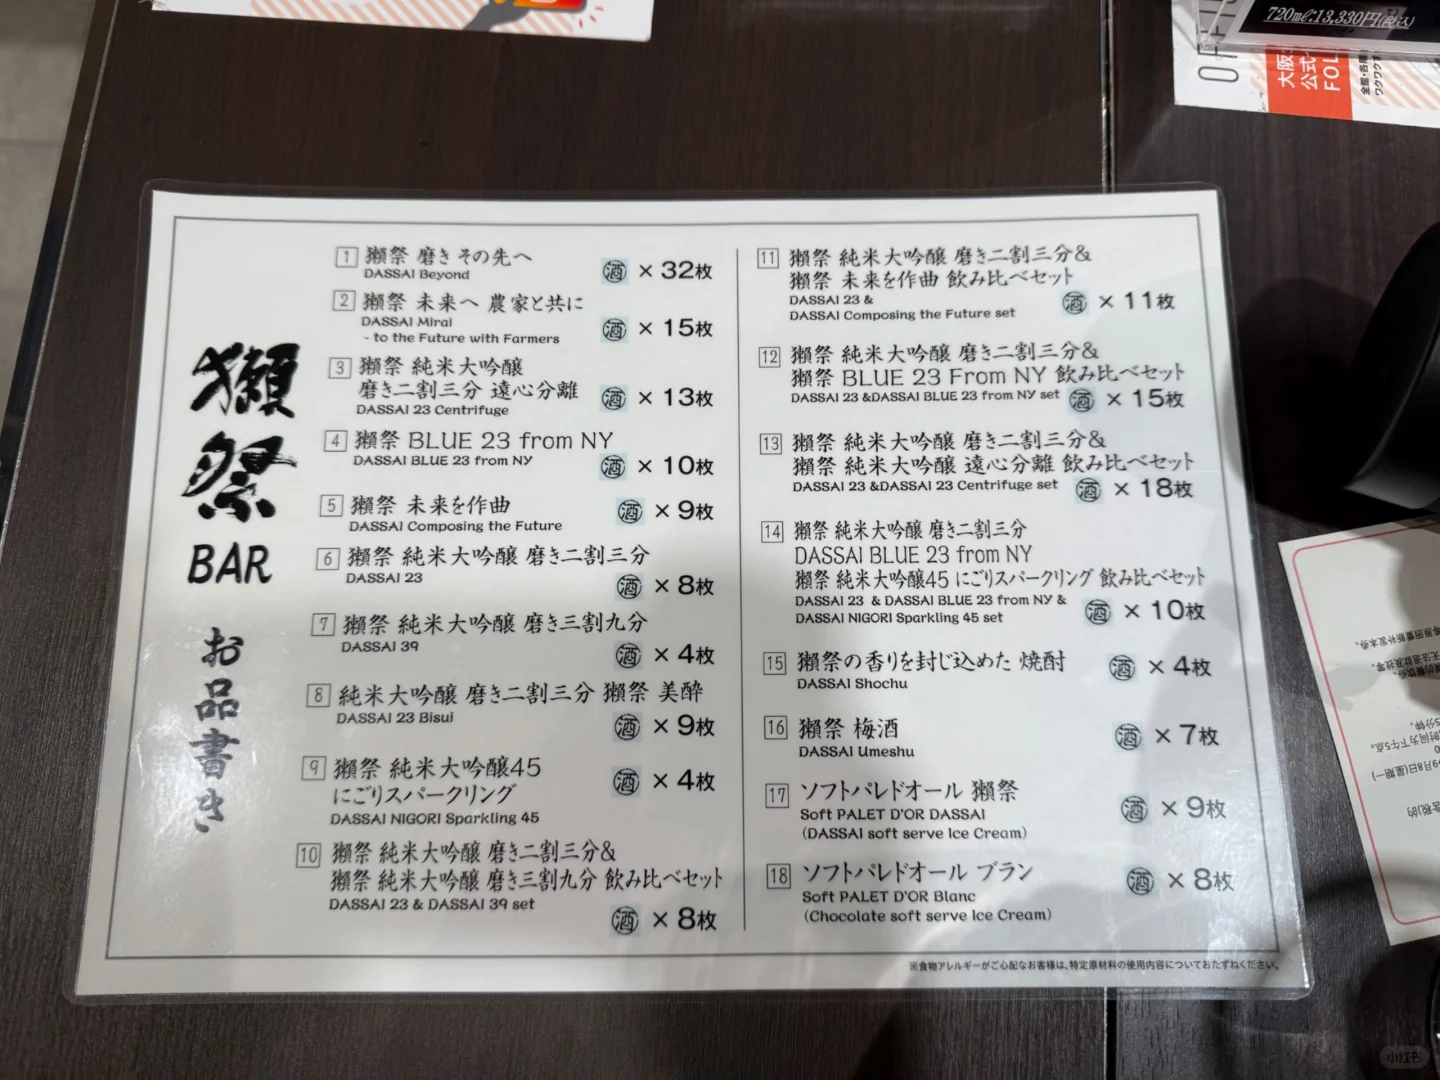 720ml:13,330円(税込)
大阪
公式
FOL
獺祭
BAR
お品書き
1 獺祭 磨き その先へ
DASSAI Beyond
酒 × 32枚
2 獺祭 未来へ 農家と共に
DASSAI Mirai
- to the Future with Farmers
酒 × 15枚
3 獺祭 純米大吟醸
磨き二割三分 遠心分離
DASSAI 23 Centrifuge
酒 × 13枚
4 獺祭 BLUE 23 from NY
DASSAI BLUE 23 from NY
酒 × 10枚
5 獺祭 未来を作曲
DASSAI Composing the Future
酒 × 9枚
6 獺祭 純米大吟醸 磨き二割三分
DASSAI 23
酒 × 8枚
7 獺祭 純米大吟醸 磨き三割九分
DASSAI 39
酒 × 4枚
8 純米大吟醸 磨き二割三分 獺祭 美酔
DASSAI 23 Bisui
酒 × 9枚
9 獺祭 純米大吟醸45
にごりスパークリング
DASSAI NIGORI Sparkling 45
酒 × 4枚
10 獺祭 純米大吟醸 磨き二割三分&
獺祭 純米大吟醸 磨き三割九分 飲み比べセット
DASSAI 23 & DASSAI 39 set
酒 × 8枚
11 獺祭 純米大吟醸 磨き二割三分&
獺祭 未来を作曲 飲み比べセット
DASSAI 23 &
DASSAI Composing the Future set
酒 × 11枚
12 獺祭 純米大吟醸 磨き二割三分&
獺祭 BLUE 23 From NY 飲み比べセット
DASSAI 23 &DASSAI BLUE 23 from NY set
酒 × 15枚
13 獺祭 純米大吟醸 磨き二割三分&
獺祭 純米大吟醸 遠心分離 飲み比べセット
DASSAI 23 &DASSAI 23 Centrifuge set
酒 × 18枚
14 獺祭 純米大吟醸 磨き二割三分
DASSAI BLUE 23 from NY
獺祭 純米大吟醸45 にごりスパークリング 飲み比べセット
DASSAI 23 & DASSAI BLUE 23 from NY &
DASSAI NIGORI Sparkling 45 set
酒 × 10枚
15 獺祭の香りを封じ込めた 焼酎
DASSAI Shochu
酒 × 4枚
16 獺祭 梅酒
DASSAI Umeshu
酒 × 7枚
17 ソフトパレドオール 獺祭
Soft PALET D'OR DASSAI
(DASSAI soft serve Ice Cream)
酒 × 9枚
18 ソフトパレドオール ブラン
Soft PALET D'OR Blanc
(Chocolate soft serve Ice Cream)
酒 × 8枚
※食物アレルギーがご心配なお客様は、特定原材料の使用内容についておたずねください。
小红书